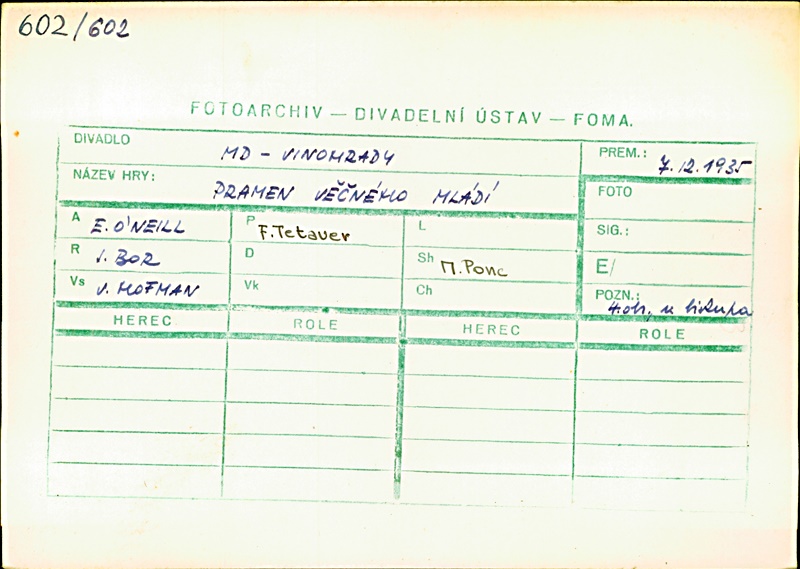 602/602
FOTOARCHIV — DIVADELNÍ ÚSTAV — FOMA.
DIVADLO MD - VINOHRADY PREM.: 7.12.1935
NÁZEV HRY: PRAMEN VĚČNÉHO MLÁDÍ FOTO
A E. O'NEILL P F.Tetauer L SIG.:
R J. BOR D Sh M.Ponc E/
Vs V. HOFMAN Vk Ch POZN.: 4.oh. u
HEREC ROLE HEREC ROLE